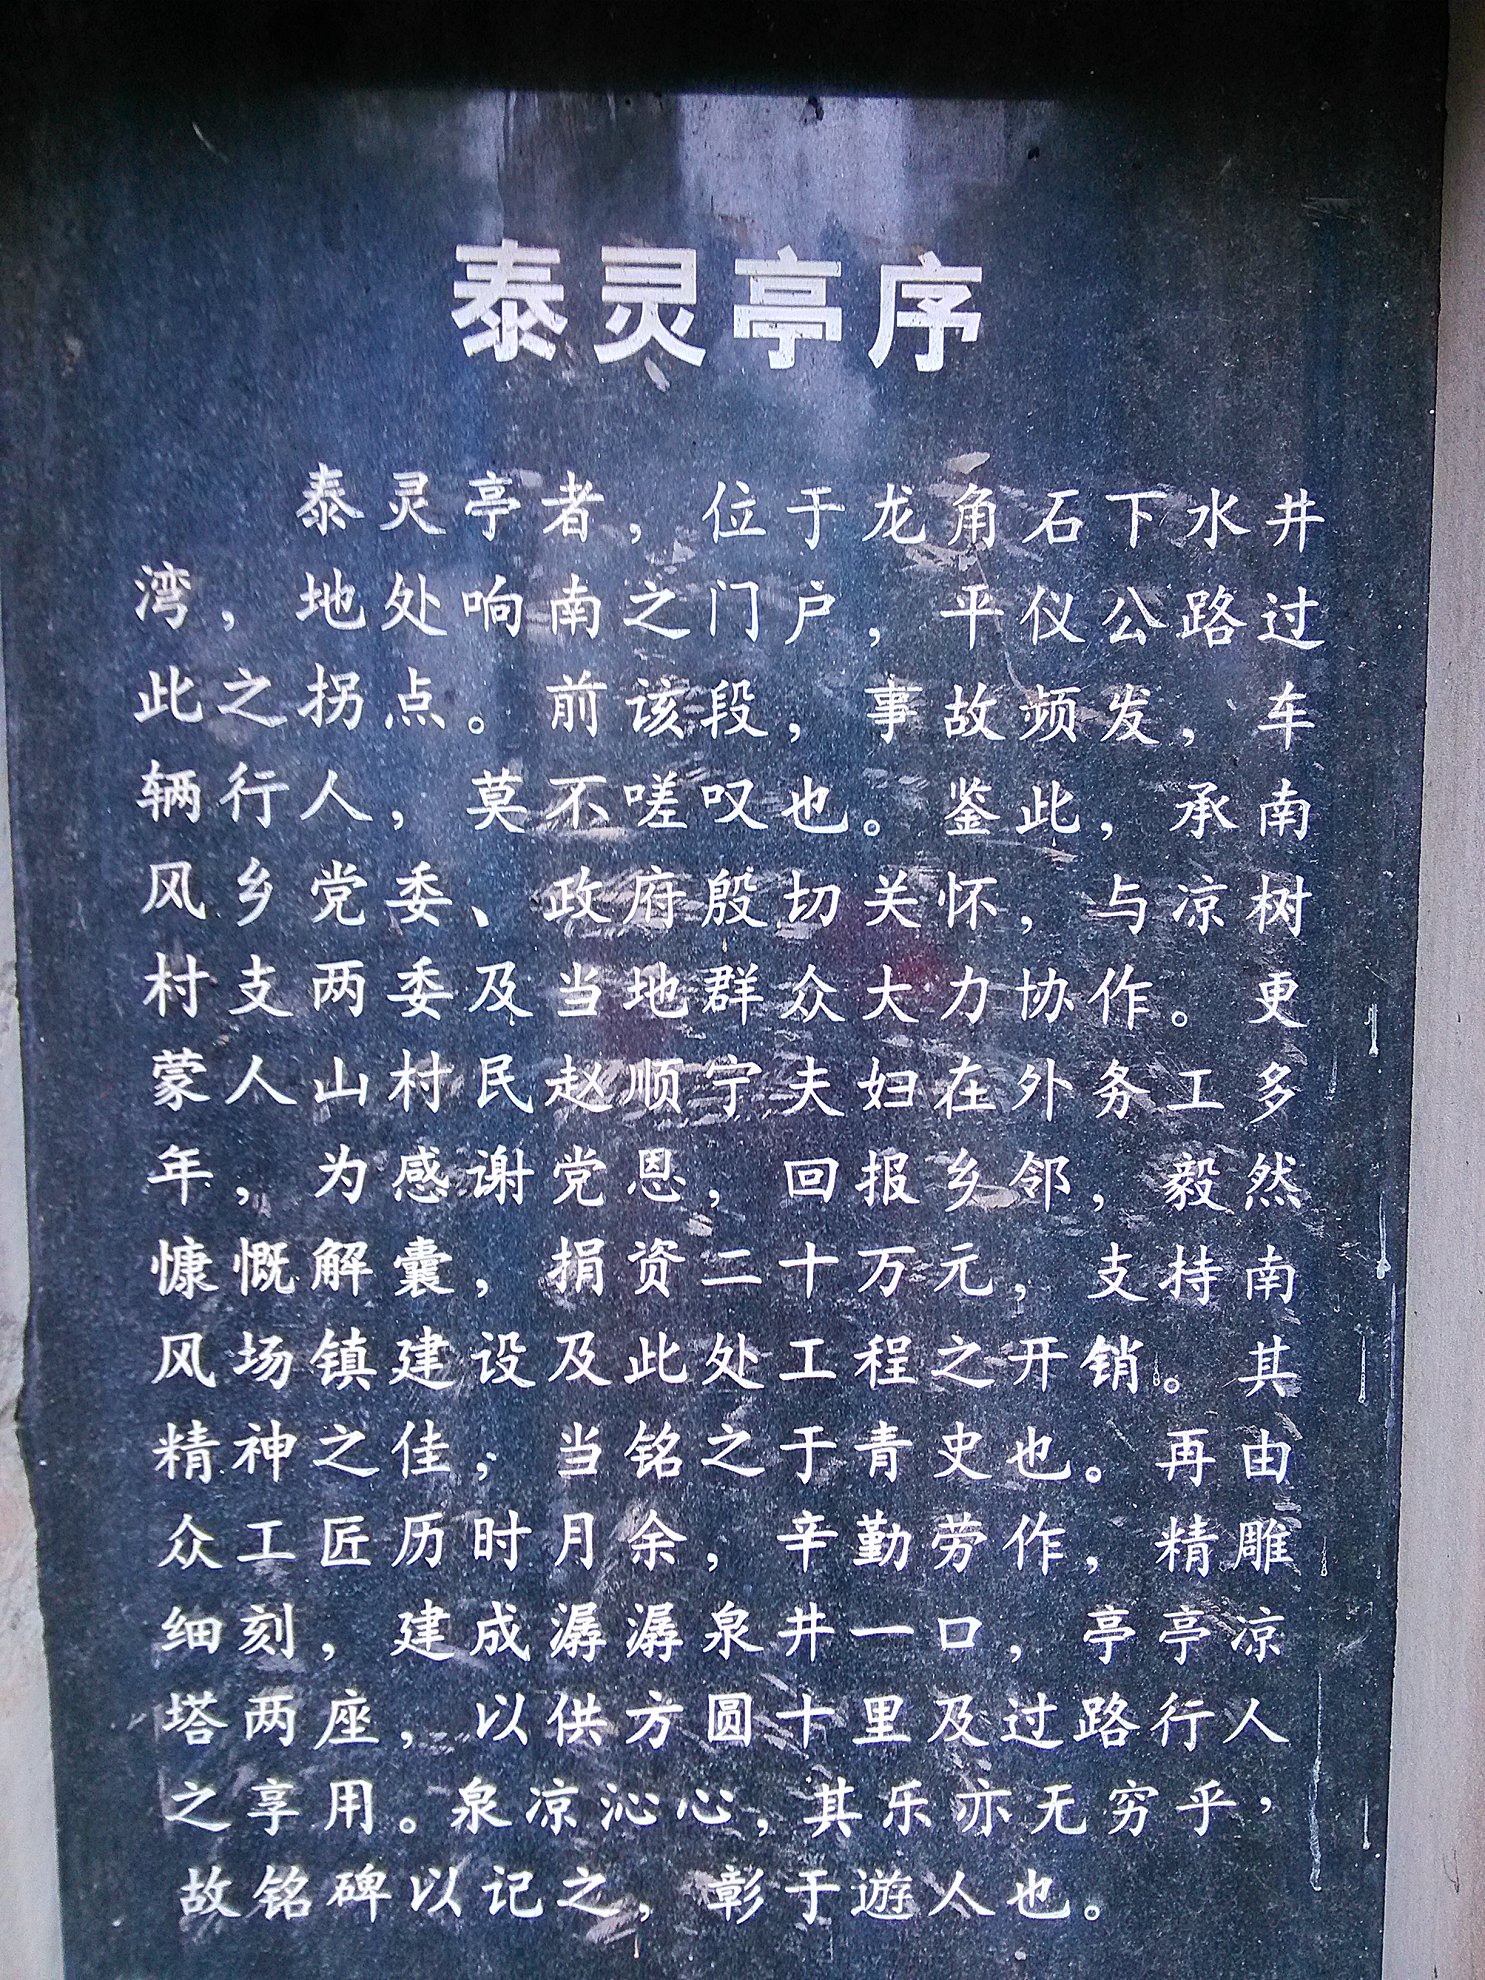 泰灵亭序
泰灵亭者，位于龙角石下水井
湾，地处响南之门户，平仪公路过
此之拐点。前该段，事故频发，车
辆行人，莫不嗟叹也。鉴此，承南
风乡党委、政府殷切关怀，与凉树
村支两委及当地群众大力协作。更
蒙人山村民赵顺宁夫妇在外务工多
年，为感谢党恩，回报乡邻，毅然
慷慨解囊，捐资二十万元，支持南
风场镇建设及此处工程之开销。其
精神之佳，当铭之于青史也。再由
众工匠历时月余，辛勤劳作，精雕
细刻，建成潺潺泉井一口，亭亭凉
塔两座，以供方圆十里及过路行人
之享用。泉凉沁心，其乐亦无穷乎，
故铭碑以记之，彰于遊人也。